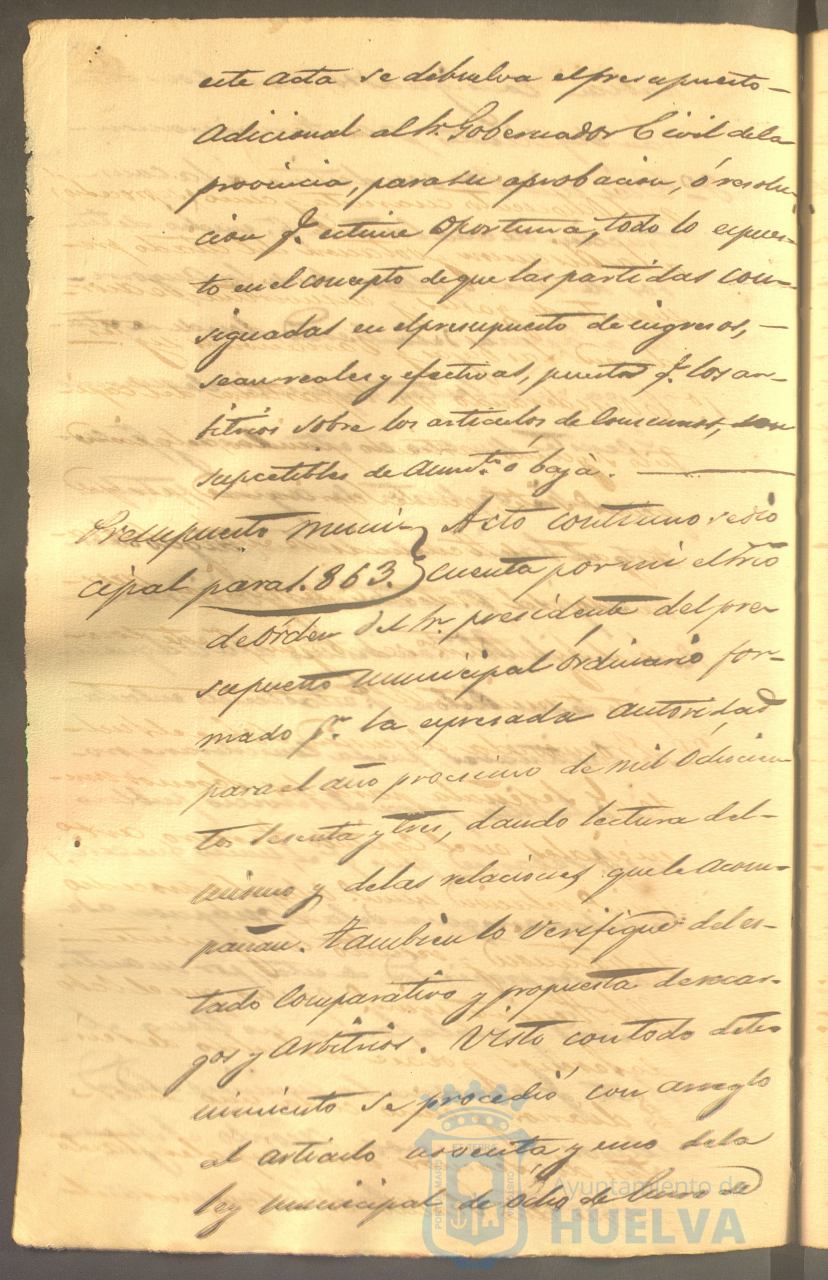 este acta se debuelva el presupuesto
Adicional al Sr. Gobernador Civil de la
provincia, para su aprobacion, ó resolu-
cion q.e estime Oportuna, todo lo espues-
to en el concepto de que las partidas con-
signadas en el presupuesto de ingresos, -
sean reales y efectivas, puesto q.e los ar-
bitrios sobre los articulos de Consumos, son
supcetibles de Aum.to ó baja.
Presupuesto muni-
cipal para 1.863.
Acto continuo se dió
cuenta por mi el Srio
de Orden del Sr. presidente del pre-
supuesto municipal Ordinario for-
mado p.r la espresada autoridad
para el año procsimo de mil Ochocien-
tos Sesenta y tres, dando lectura del -
mismo y de las relaciones que le acom-
pañan. Tambien lo Verifiqué del es-
tado Comparativo y propuesta de recar-
gos y Arbitrios. Visto con todo dete-
nimiento se procedió con arreglo
al articulo noventa y uno de la
ley municipal de Ocho de Enero de
Ayuntamiento de
HUELVA